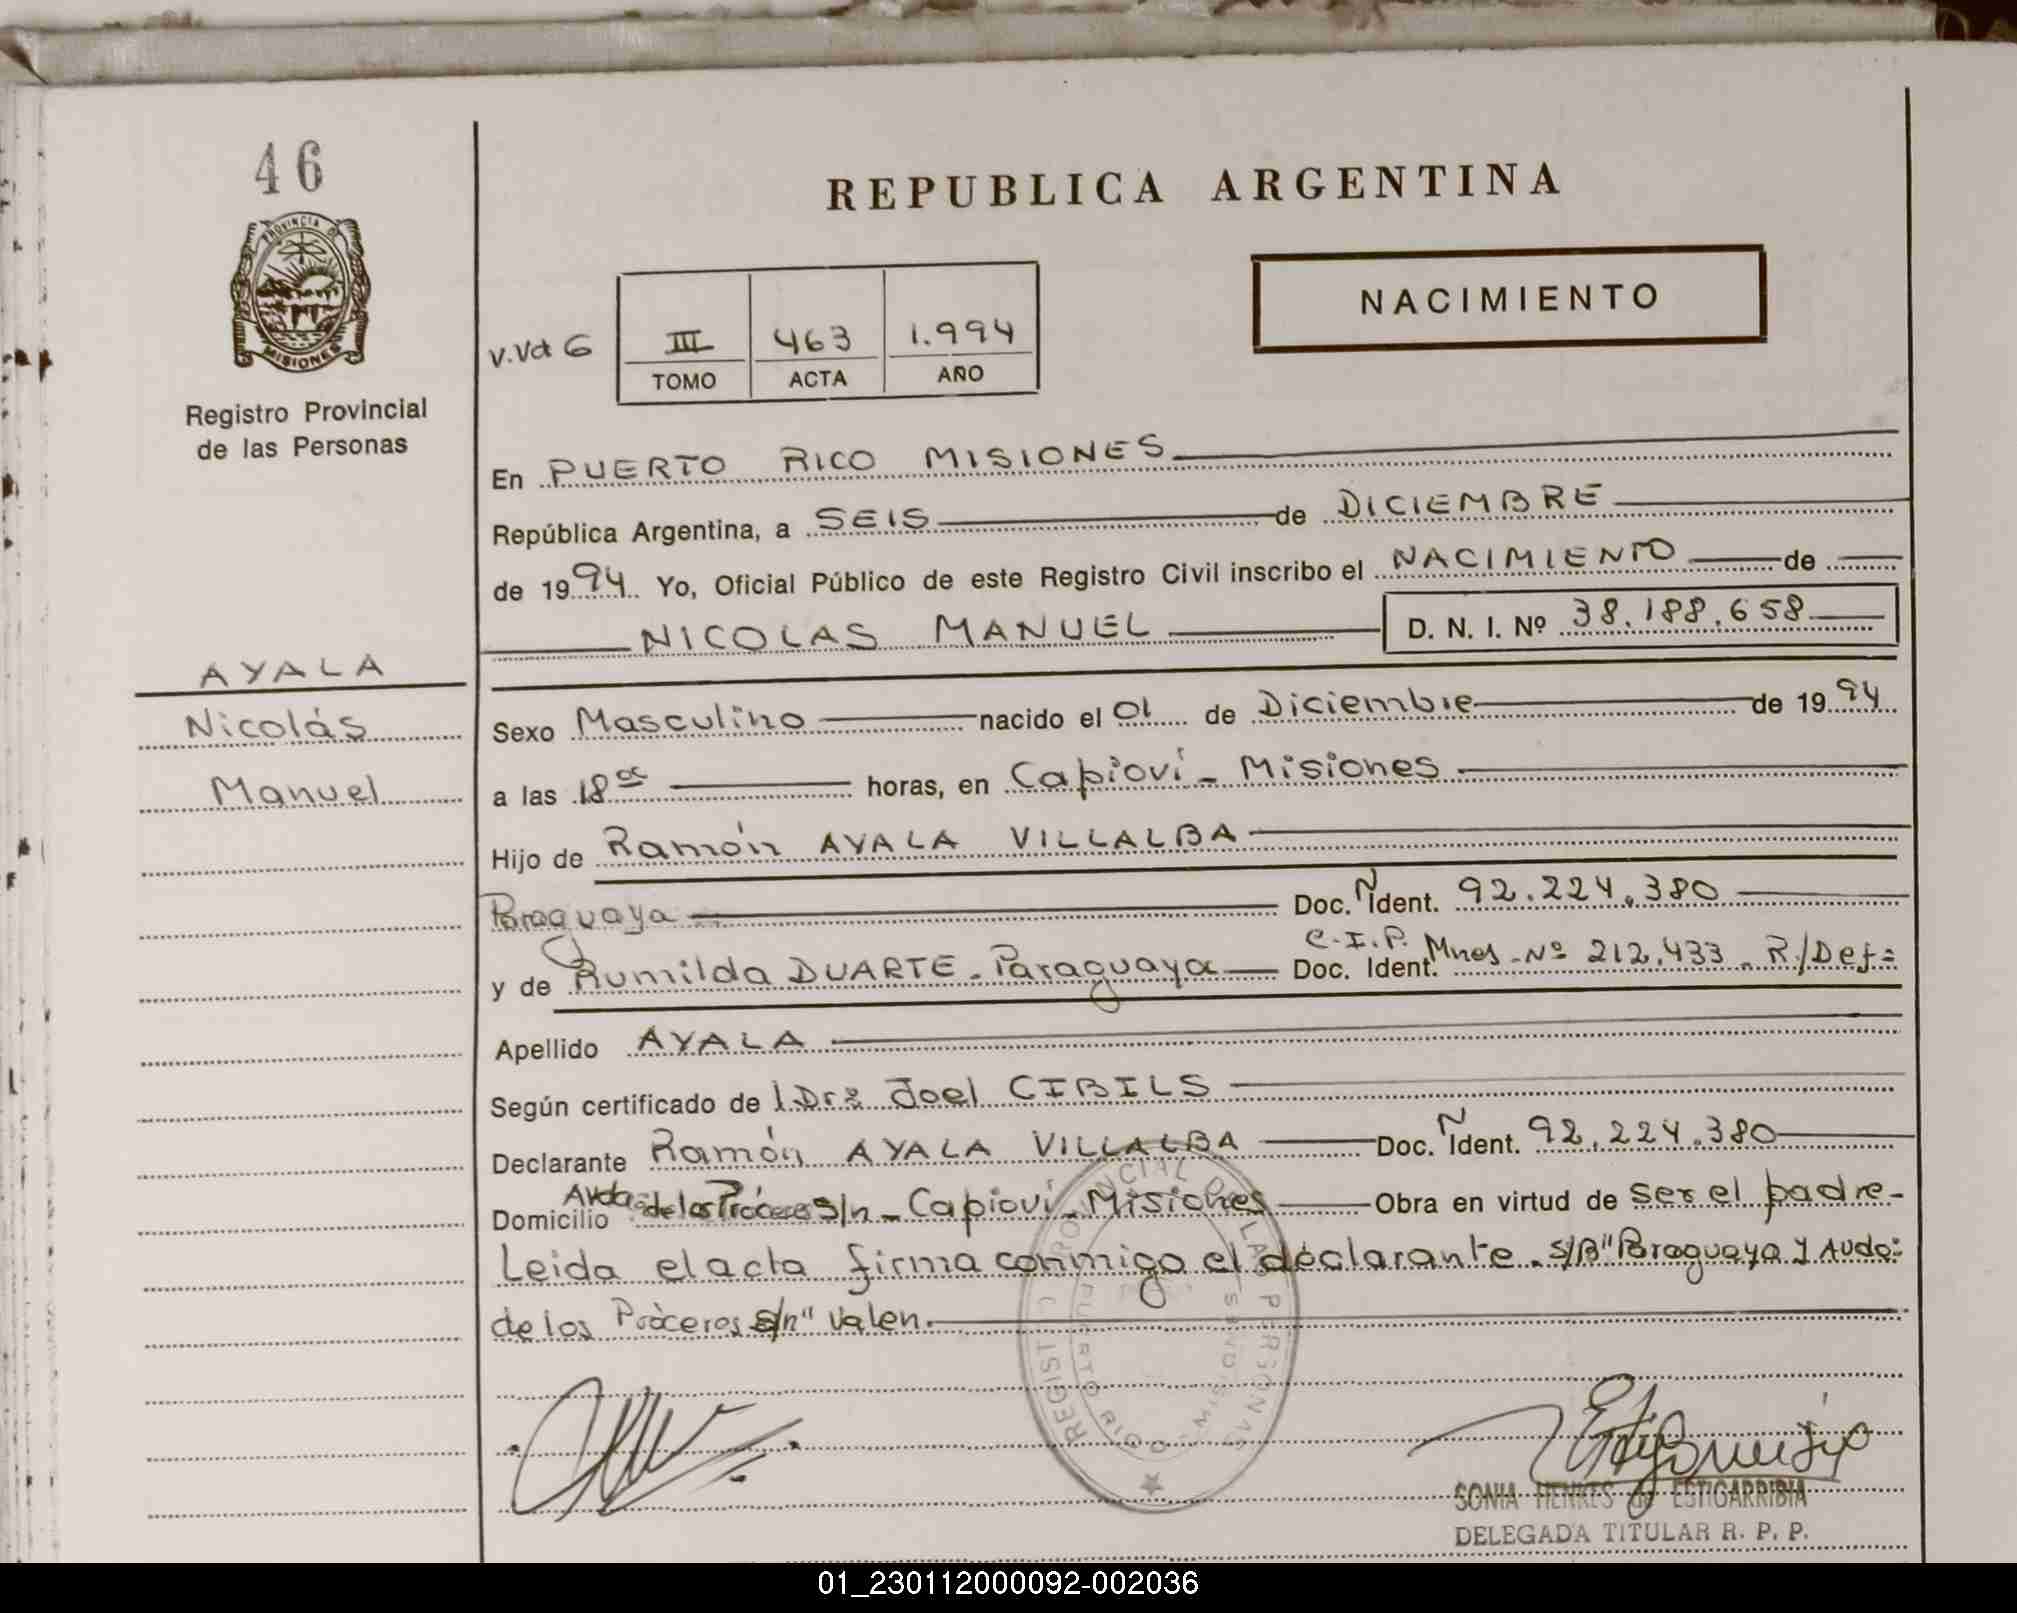 46
PROVINCIA D
MISIONES
Registro Provincial
de las Personas
REPUBLICA ARGENTINA
NACIMIENTO
III 463 1.994
TOMO ACTA AÑO
En PUERTO RICO MISIONES
República Argentina, a SEIS de DICIEMBRE
de 1994 Yo, Oficial Público de este Registro Civil inscribo el NACIMIENTO de
NICOLAS MANUEL D. N. I. Nº 38.188.658
AYALA
Nicolás
Manuel
Sexo Masculino nacido el 01 de Diciembre de 1994
a las 18 horas, en Capioví - Misiones
Hijo de Ramón AYALA VILLALBA
Paraguaya Doc. Ñ Ident. 92.224.380
y de Rumilda DUARTE - Paraguaya C.I.P. Doc. Ident. Mnes - Nº 212.433 - R/Def=
Apellido AYALA
Según certificado de Joel CIBILS
Declarante Ramón AYALA VILLALBA Doc. Ñ Ident. 92.224.380
Domicilio Avda de los Próceres s/n - Capioví - Misiones Obra en virtud de ser el padre-
Leida el acta firma conmigo el declarante - S/B" Paraguaya y Avda:
de los Próceres s/n" valen.
REGISTRO PROVINCIAL DE LAS PERSONAS
PUERTO RICO MISIONES
SONIA HENKES de ESTIGARRIBIA
DELEGADA TITULAR R. P. P.
01_230112000092-002036